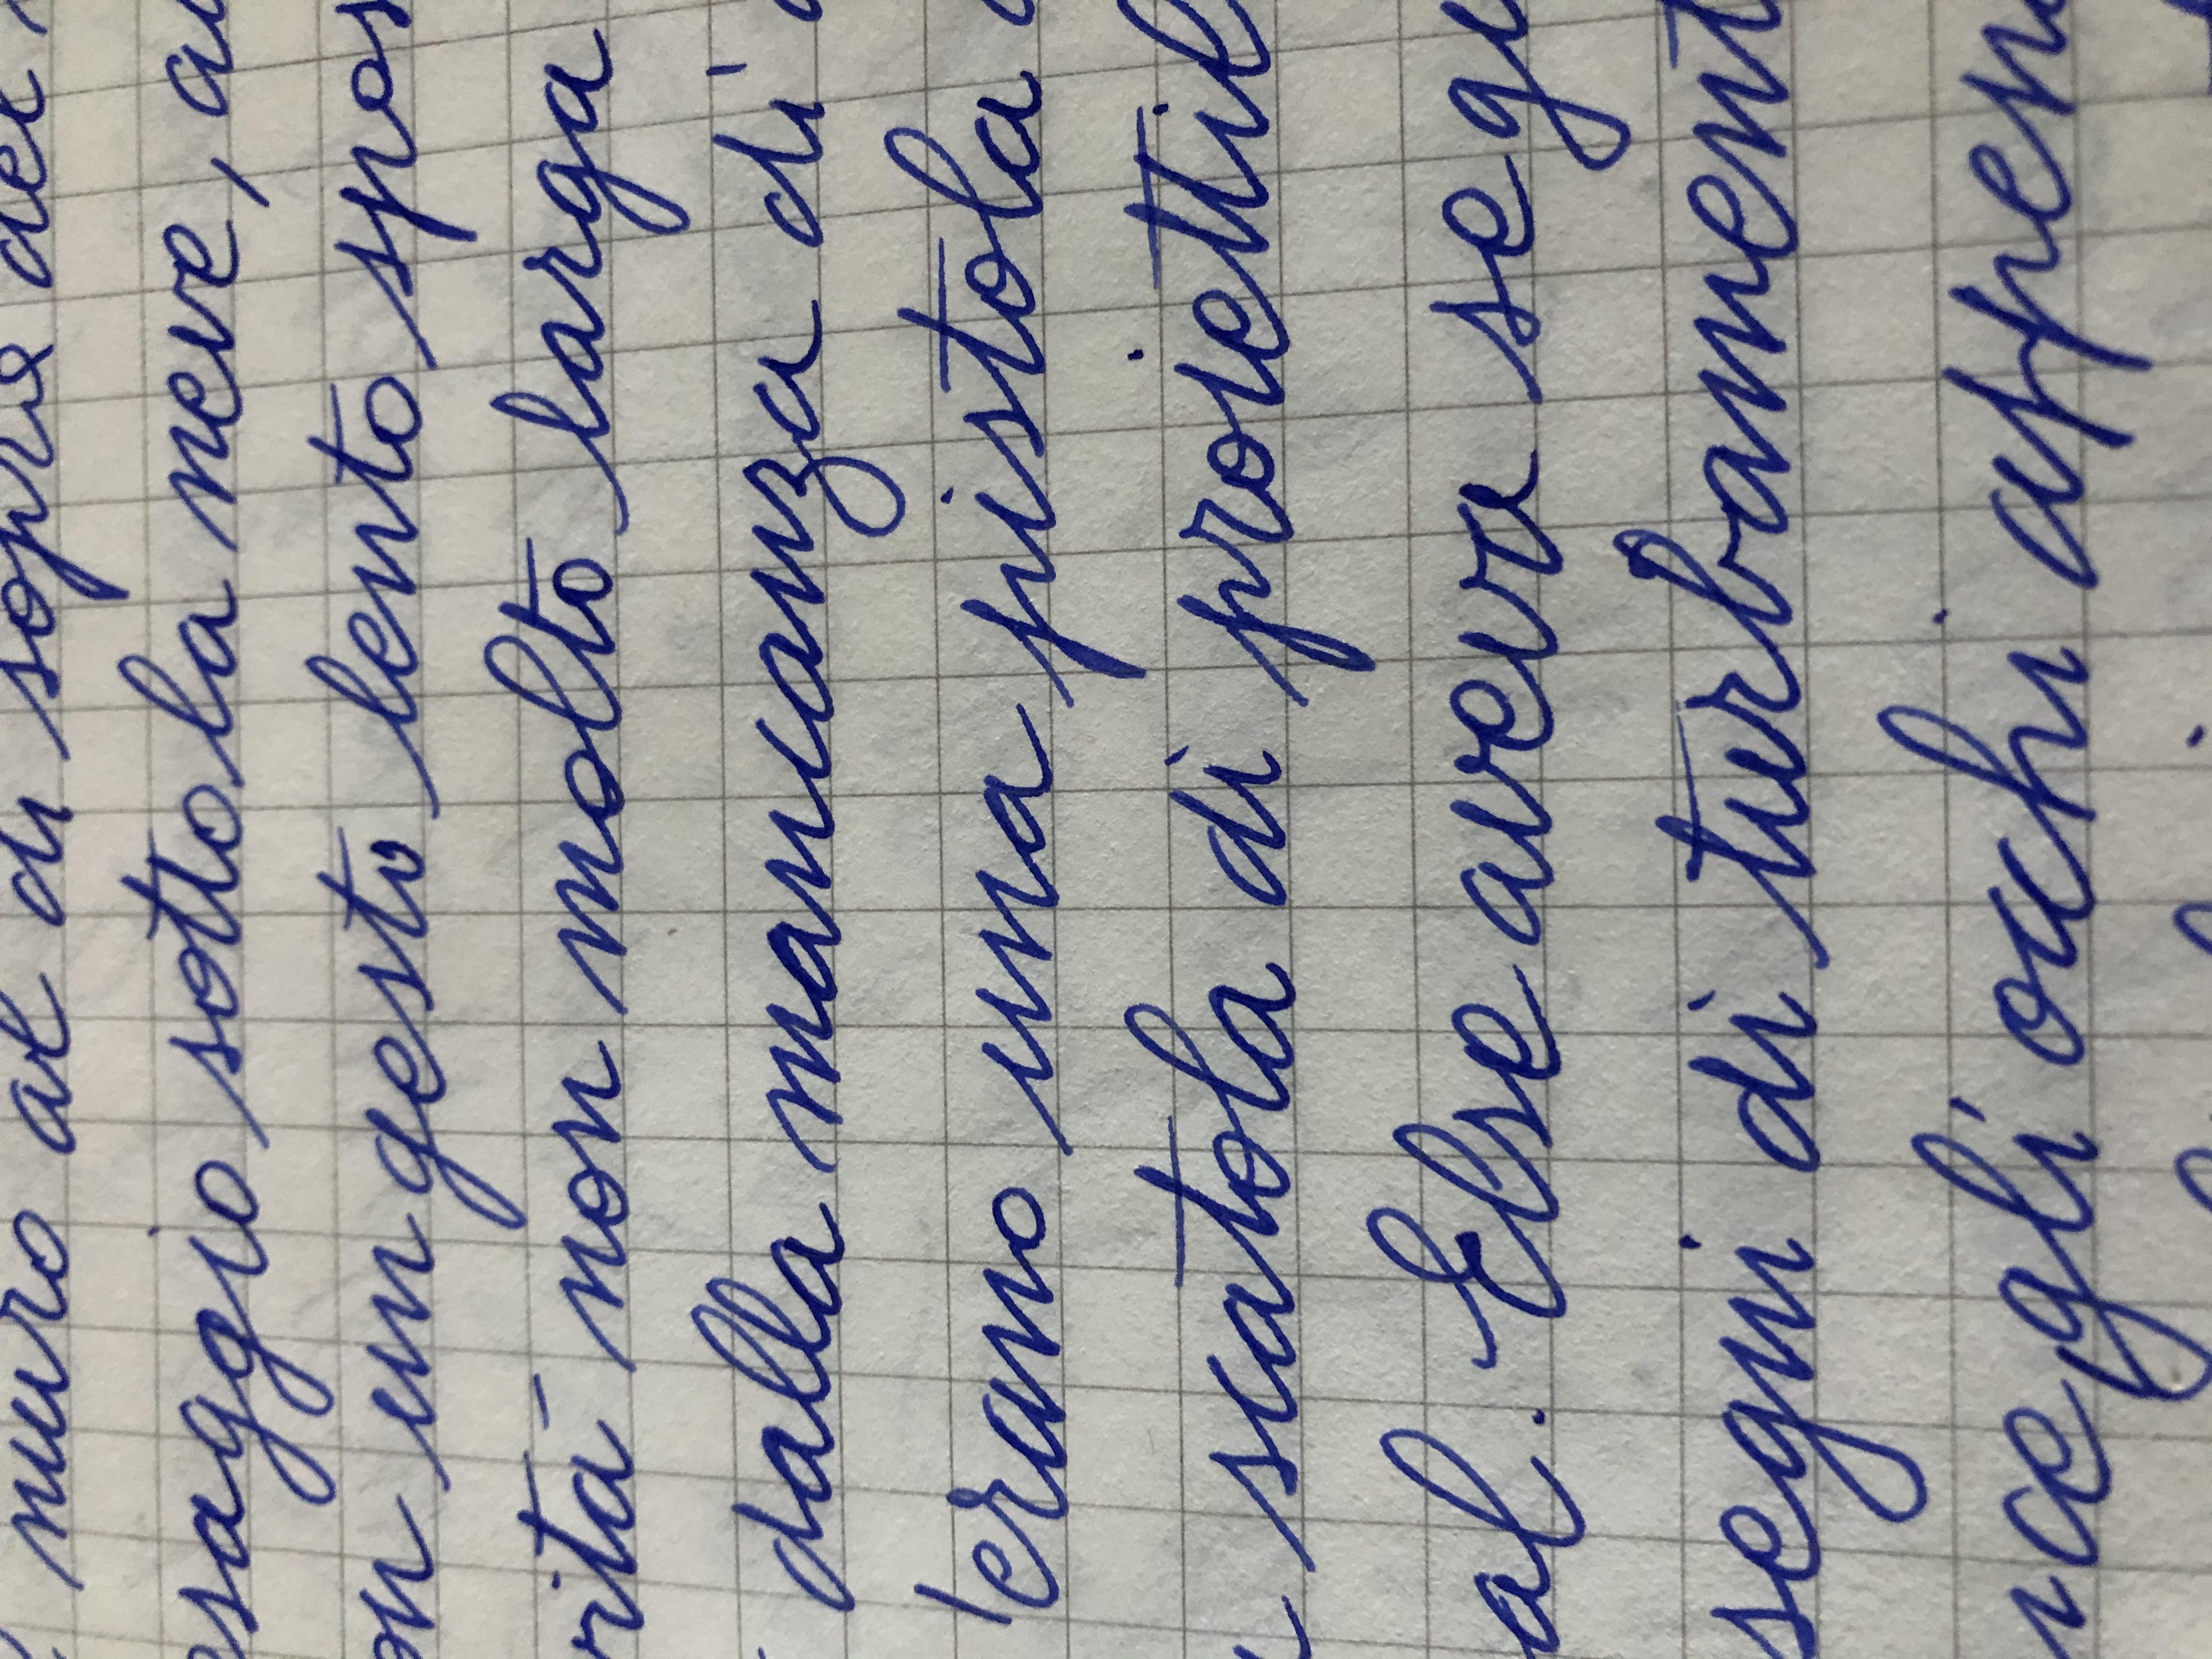 muro al di sopra del
saggio sotto la neve, a
on un gesto lento spos
rità non molto larga
dalla mancanza di
'erano una pistola
scatola di proiettil
al. Else aveva seg
segni di turbament
cegli occhi appen